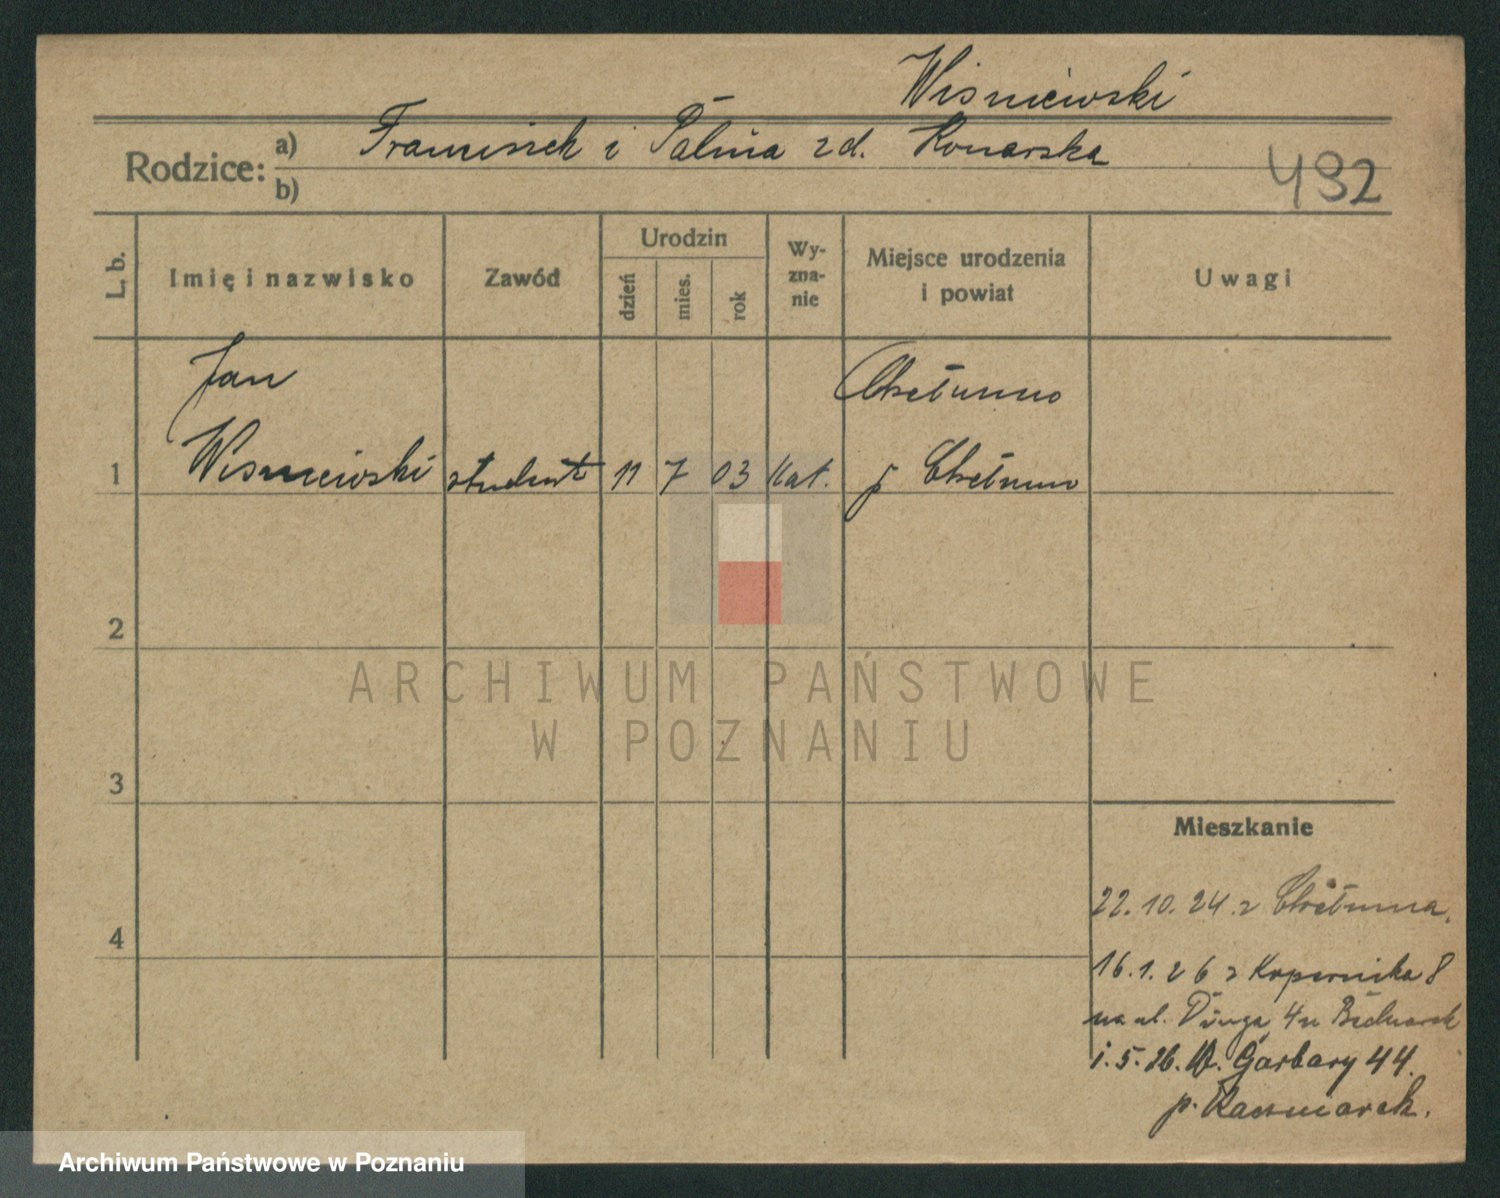 Wiśniewski
Rodzice: a) Franciszek i Palma zd. Konarska
b)
492
L. b.
Imię i nazwisko
Zawód
Urodzin
dzień
mies.
rok
Wy-
zna-
nie
Miejsce urodzenia
i powiat
Uwagi
Jan
Chełmno
1 Wiśniewski student 11 7 03 Kat. p Chełmno
2
ARCHIWUM PAŃSTWOWE
W POZNANIU
3
Mieszkanie
22.10.24. z Chełmna.
4
16.1.26 z Kopernika 8
na ul. Długa 4 u Bednarek
1.5.26. W. Garbary 44.
p. Kaczmarek.
Archiwum Państwowe w Poznaniu